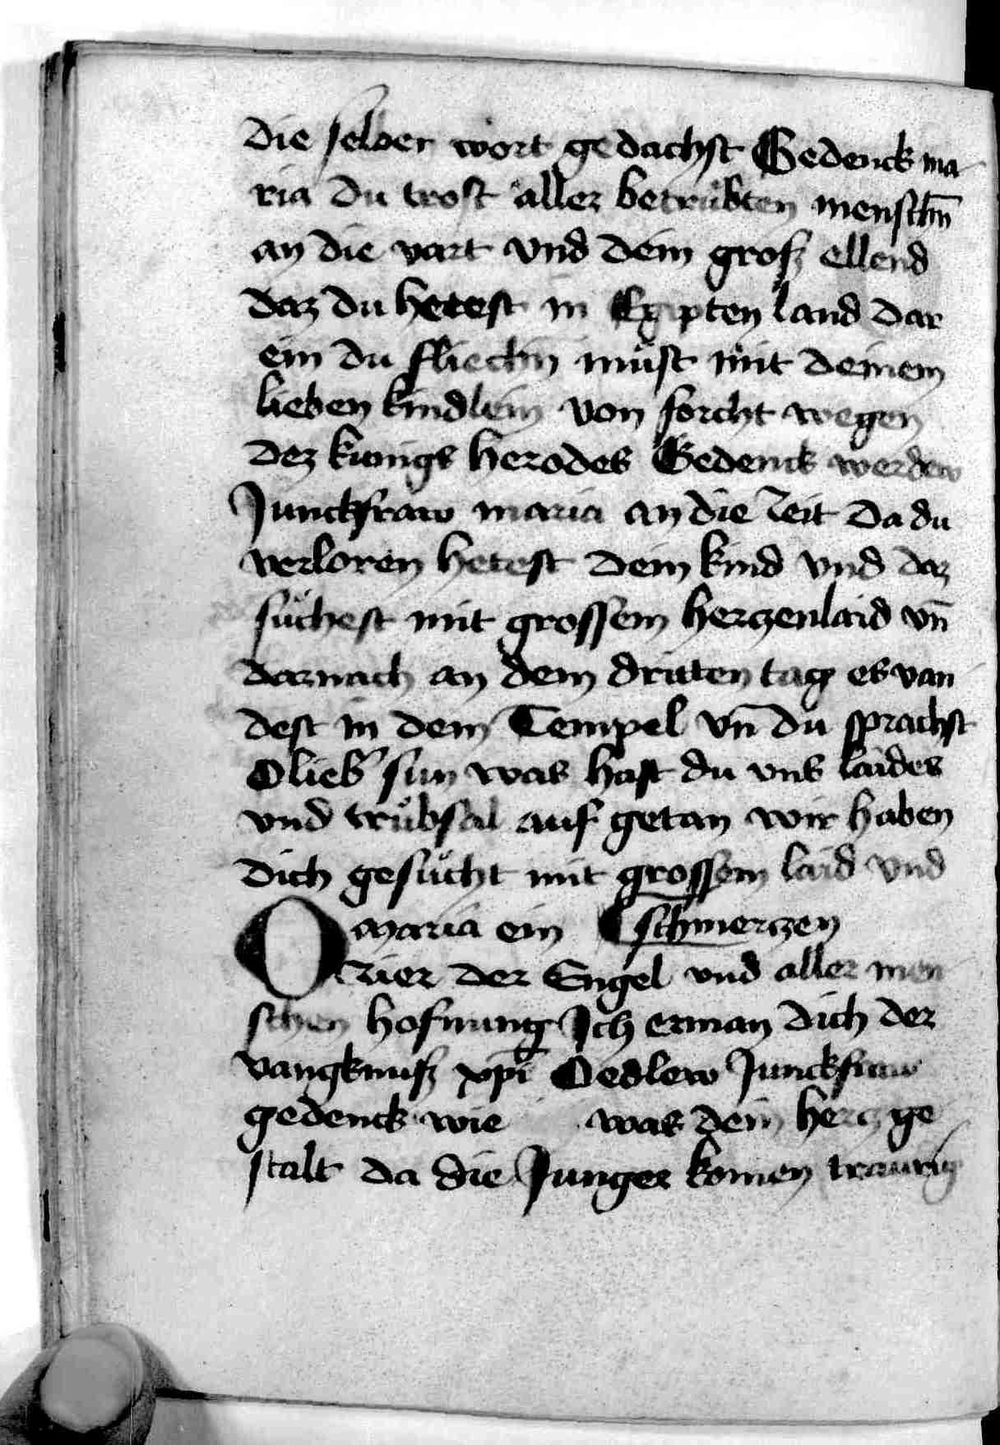 die selber wort gedachst Gedenck ma
ria du trost aller betrübten menschn̄
an die vart vnd dein grosz ellend
daz du hetest in Egipten land dar
ein du fliechn̄ müst mit deinem
lieben kindlein von forcht wegen
dez kunigs herodes Gedenck werdew
Junckfraw maria an die zeit da du
verloren hetest dein kind vnd daz
suͤchest mit grossem herczenlaid vn̄
darnach an dem dritten tag es van
dest in dem Tempel vn̄ du sprachst
O lieb' sun was hast du vns laides
vnd truͤbsal auf getan wir haben
dich gesuͤcht mit grossem laid vnd
O Maria ein schmerczen
zier der Engel vnd aller men
schen hofnung Ich erman dich der
vangknusz xp̄i O edlew Junckfraw
gedenck wie was dein hercz ge
stalt da die Junger komen traurig